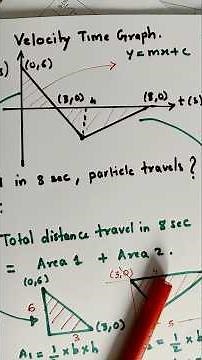 Velocity Time Graph.
y = mx + c
(0,6)
(3,0) 4 (8,0)
t (s)
in 8 sec, particle travels ?
Total distance travel in 8 sec
= Area 1 + Area 2.
(0,6)
(3,0) 4
6
3 (3,0)
5
A₁ = 1/2 x b x h
= 1/2 x b